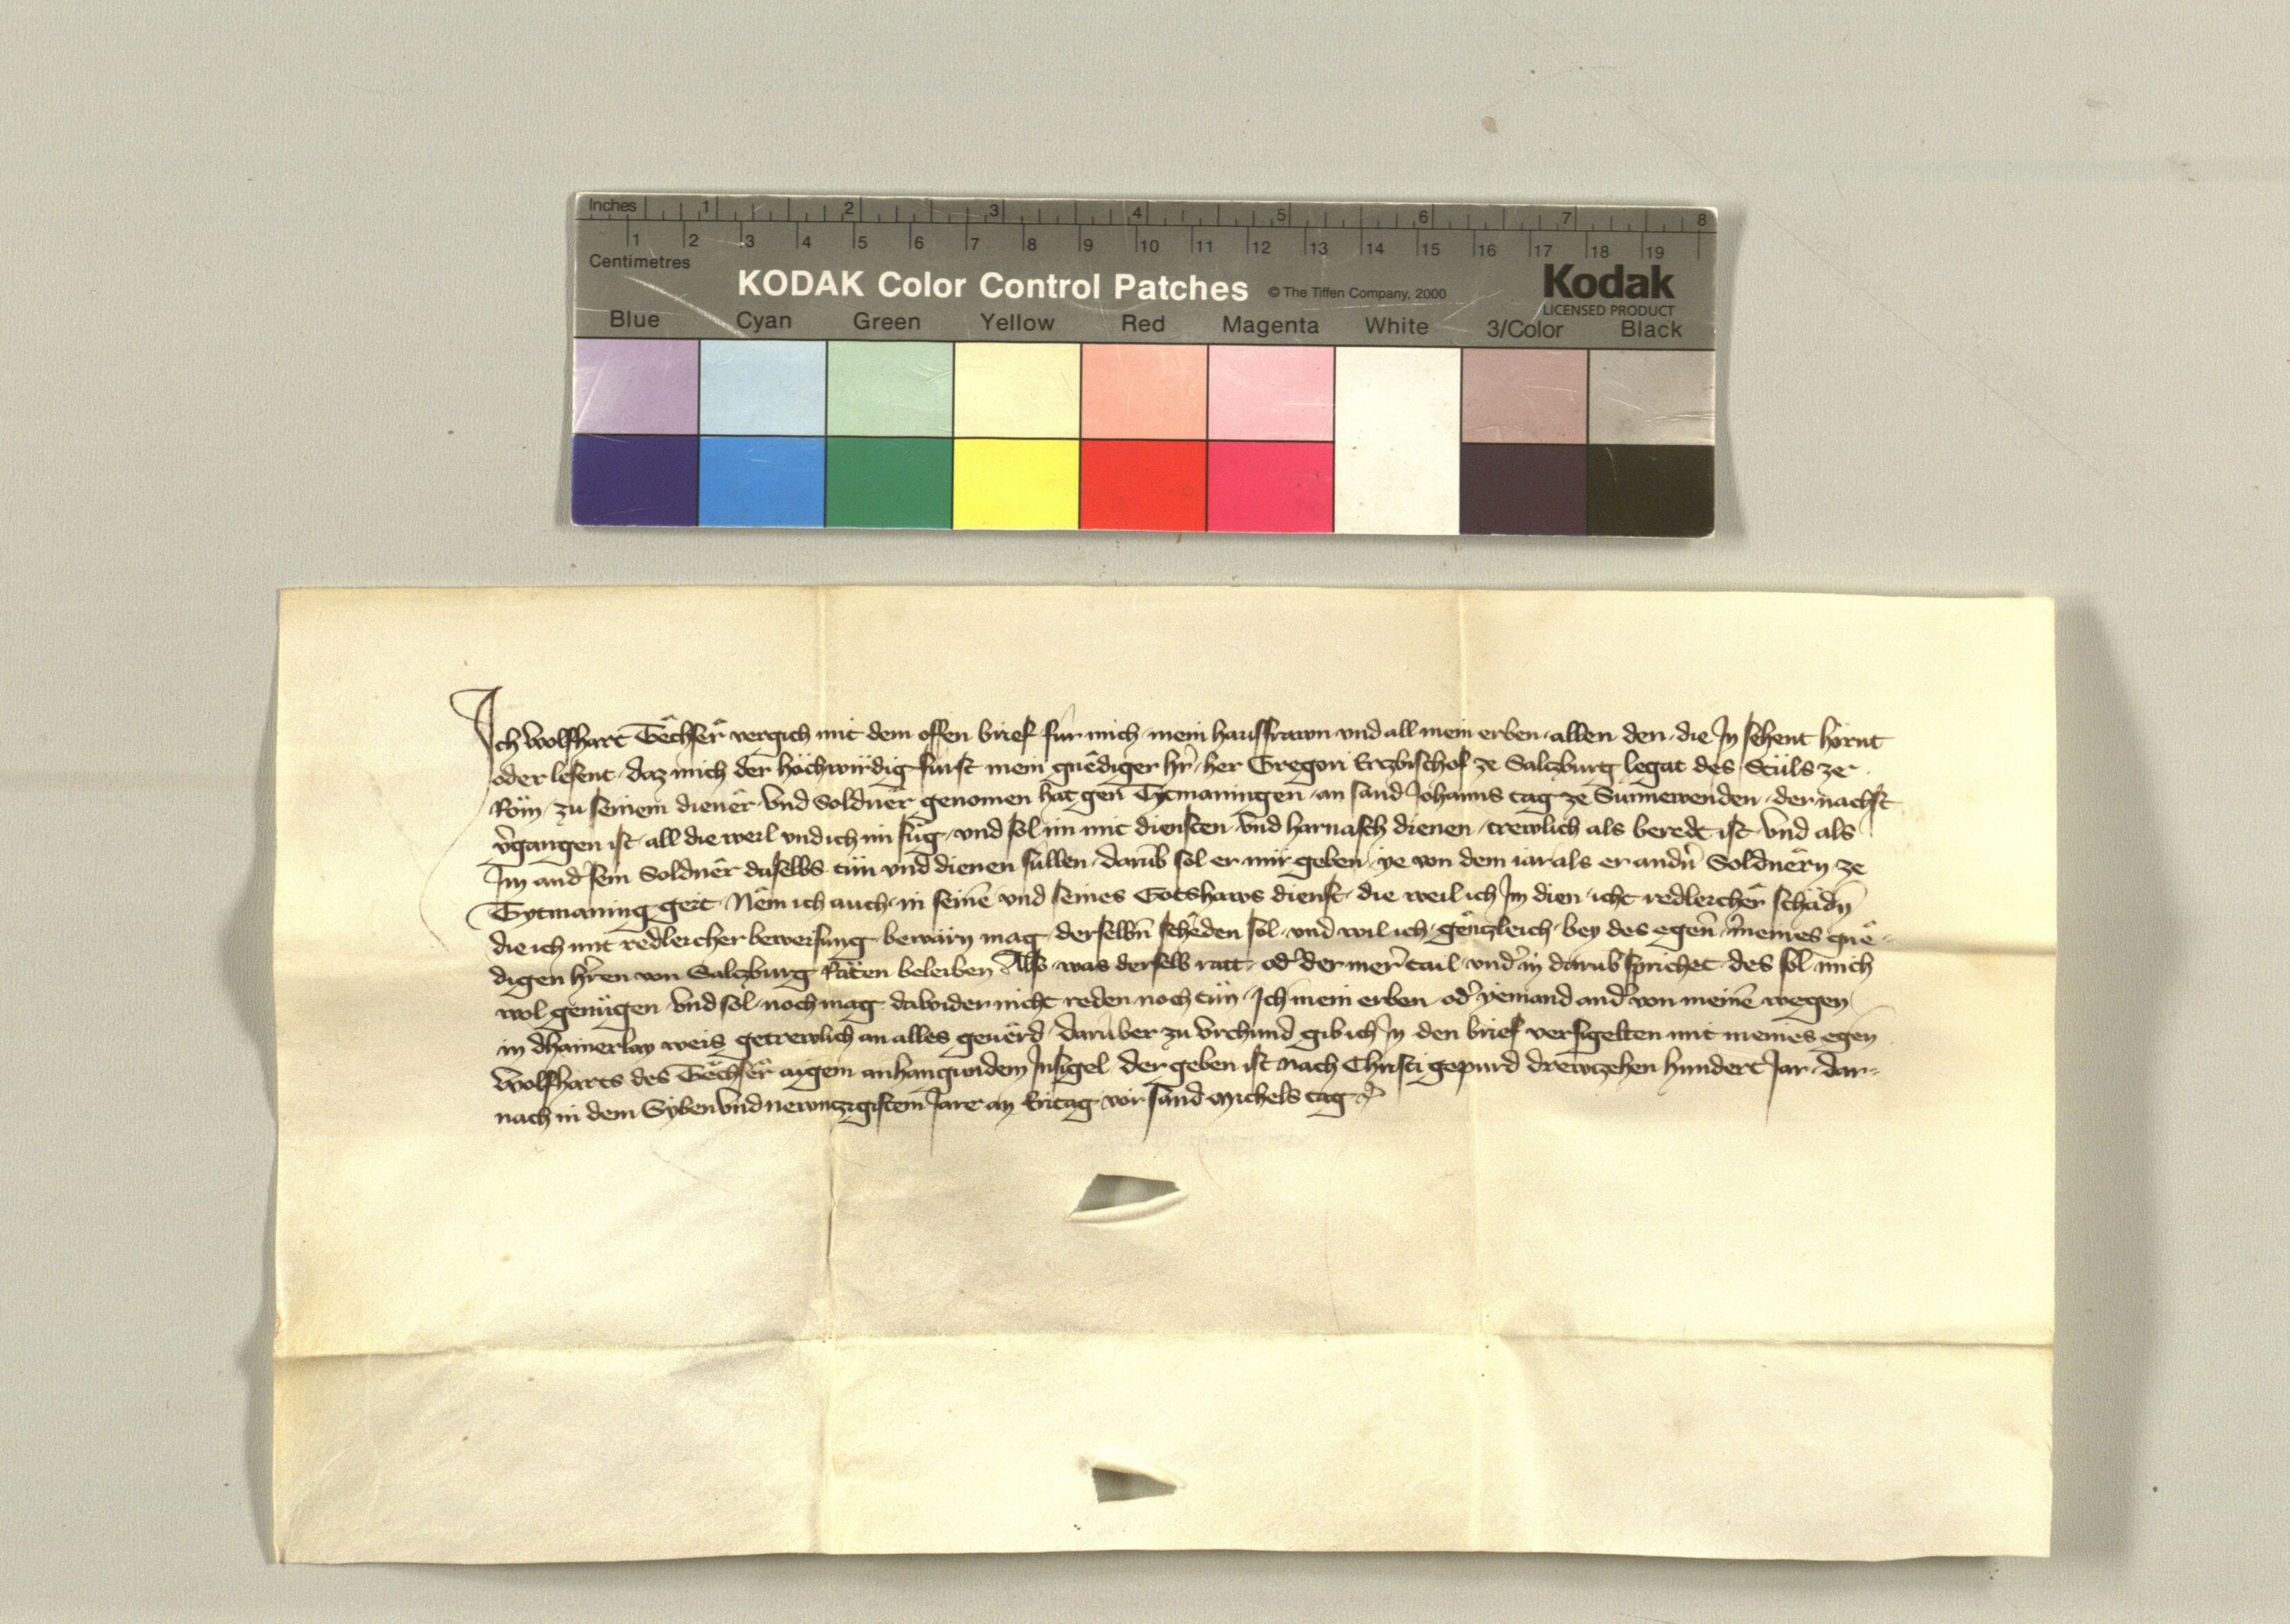 Inches 1 2 3 4 5 6 7 8
1 2 3 4 5 6 7 8 9 10 11 12 13 14 15 16 17 18 19
Centimetres
KODAK Color Control Patches © The Tiffen Company, 2000 Kodak
LICENSED PRODUCT
Blue Cyan Green Yellow Red Magenta White 3/Color Black
Ich Wolfhart vergich mit dem offen brief fur mich mein hausfrawn vnd all mein erben allen den die In sehent hörnt
oder lesent daz mich der hochwirdig furst mein gnêdiger hr̄ her Gregori Erzbischof ze Salczburg legat des Stůls ze
Rom zu seinem dienêr vnd Soldnêr genomen hat gen Tytmaningen an sand Johanns tag ze Sunnewenden der nachst
v̄gangen ist all die weil vnd ich im fůg vnd sol im mit diensten vnd harnasch dienen trewlich als beredt ist vnd als
Im and̄ sein Soldnêr daselbs tůn vnd dienen sullen darūb sol er mir geben ye von dem iar als er andn̄ Soldnêrn ze
Tytmaning geit Nêm ich auch in seinē vnd seines Gotshaws dienst die weil ich Im dien icht redleicher schädn
die ich mit redleicher beweisung bewärn mag derselbn̄ schêden sol vnd wil ich gênczleich bey des egen̄ meines gnê-
digen hr̄en von Salczburg Räten beleiben Also was derselb ratt od̄ der mer̄ tail vnd̄ in darūb sprichet des sol mich
wol genügen vnd sol noch mag dawider nicht reden noch tůn Ich mein erben od̄ yemand and̄ von meinē wegen
in dhainerlay weis getrewlich an alles geuêrd darüber zu vrchund gib ich In den brief versigelten mit meines egen
Wolfharts des aigem anhangundem Insigel der geben ist nach Christi gepurd drewczehen hundert Jar dar-
nach in dem Syben vnd newnczigistem Jare an Eritag vor sand Michels tag